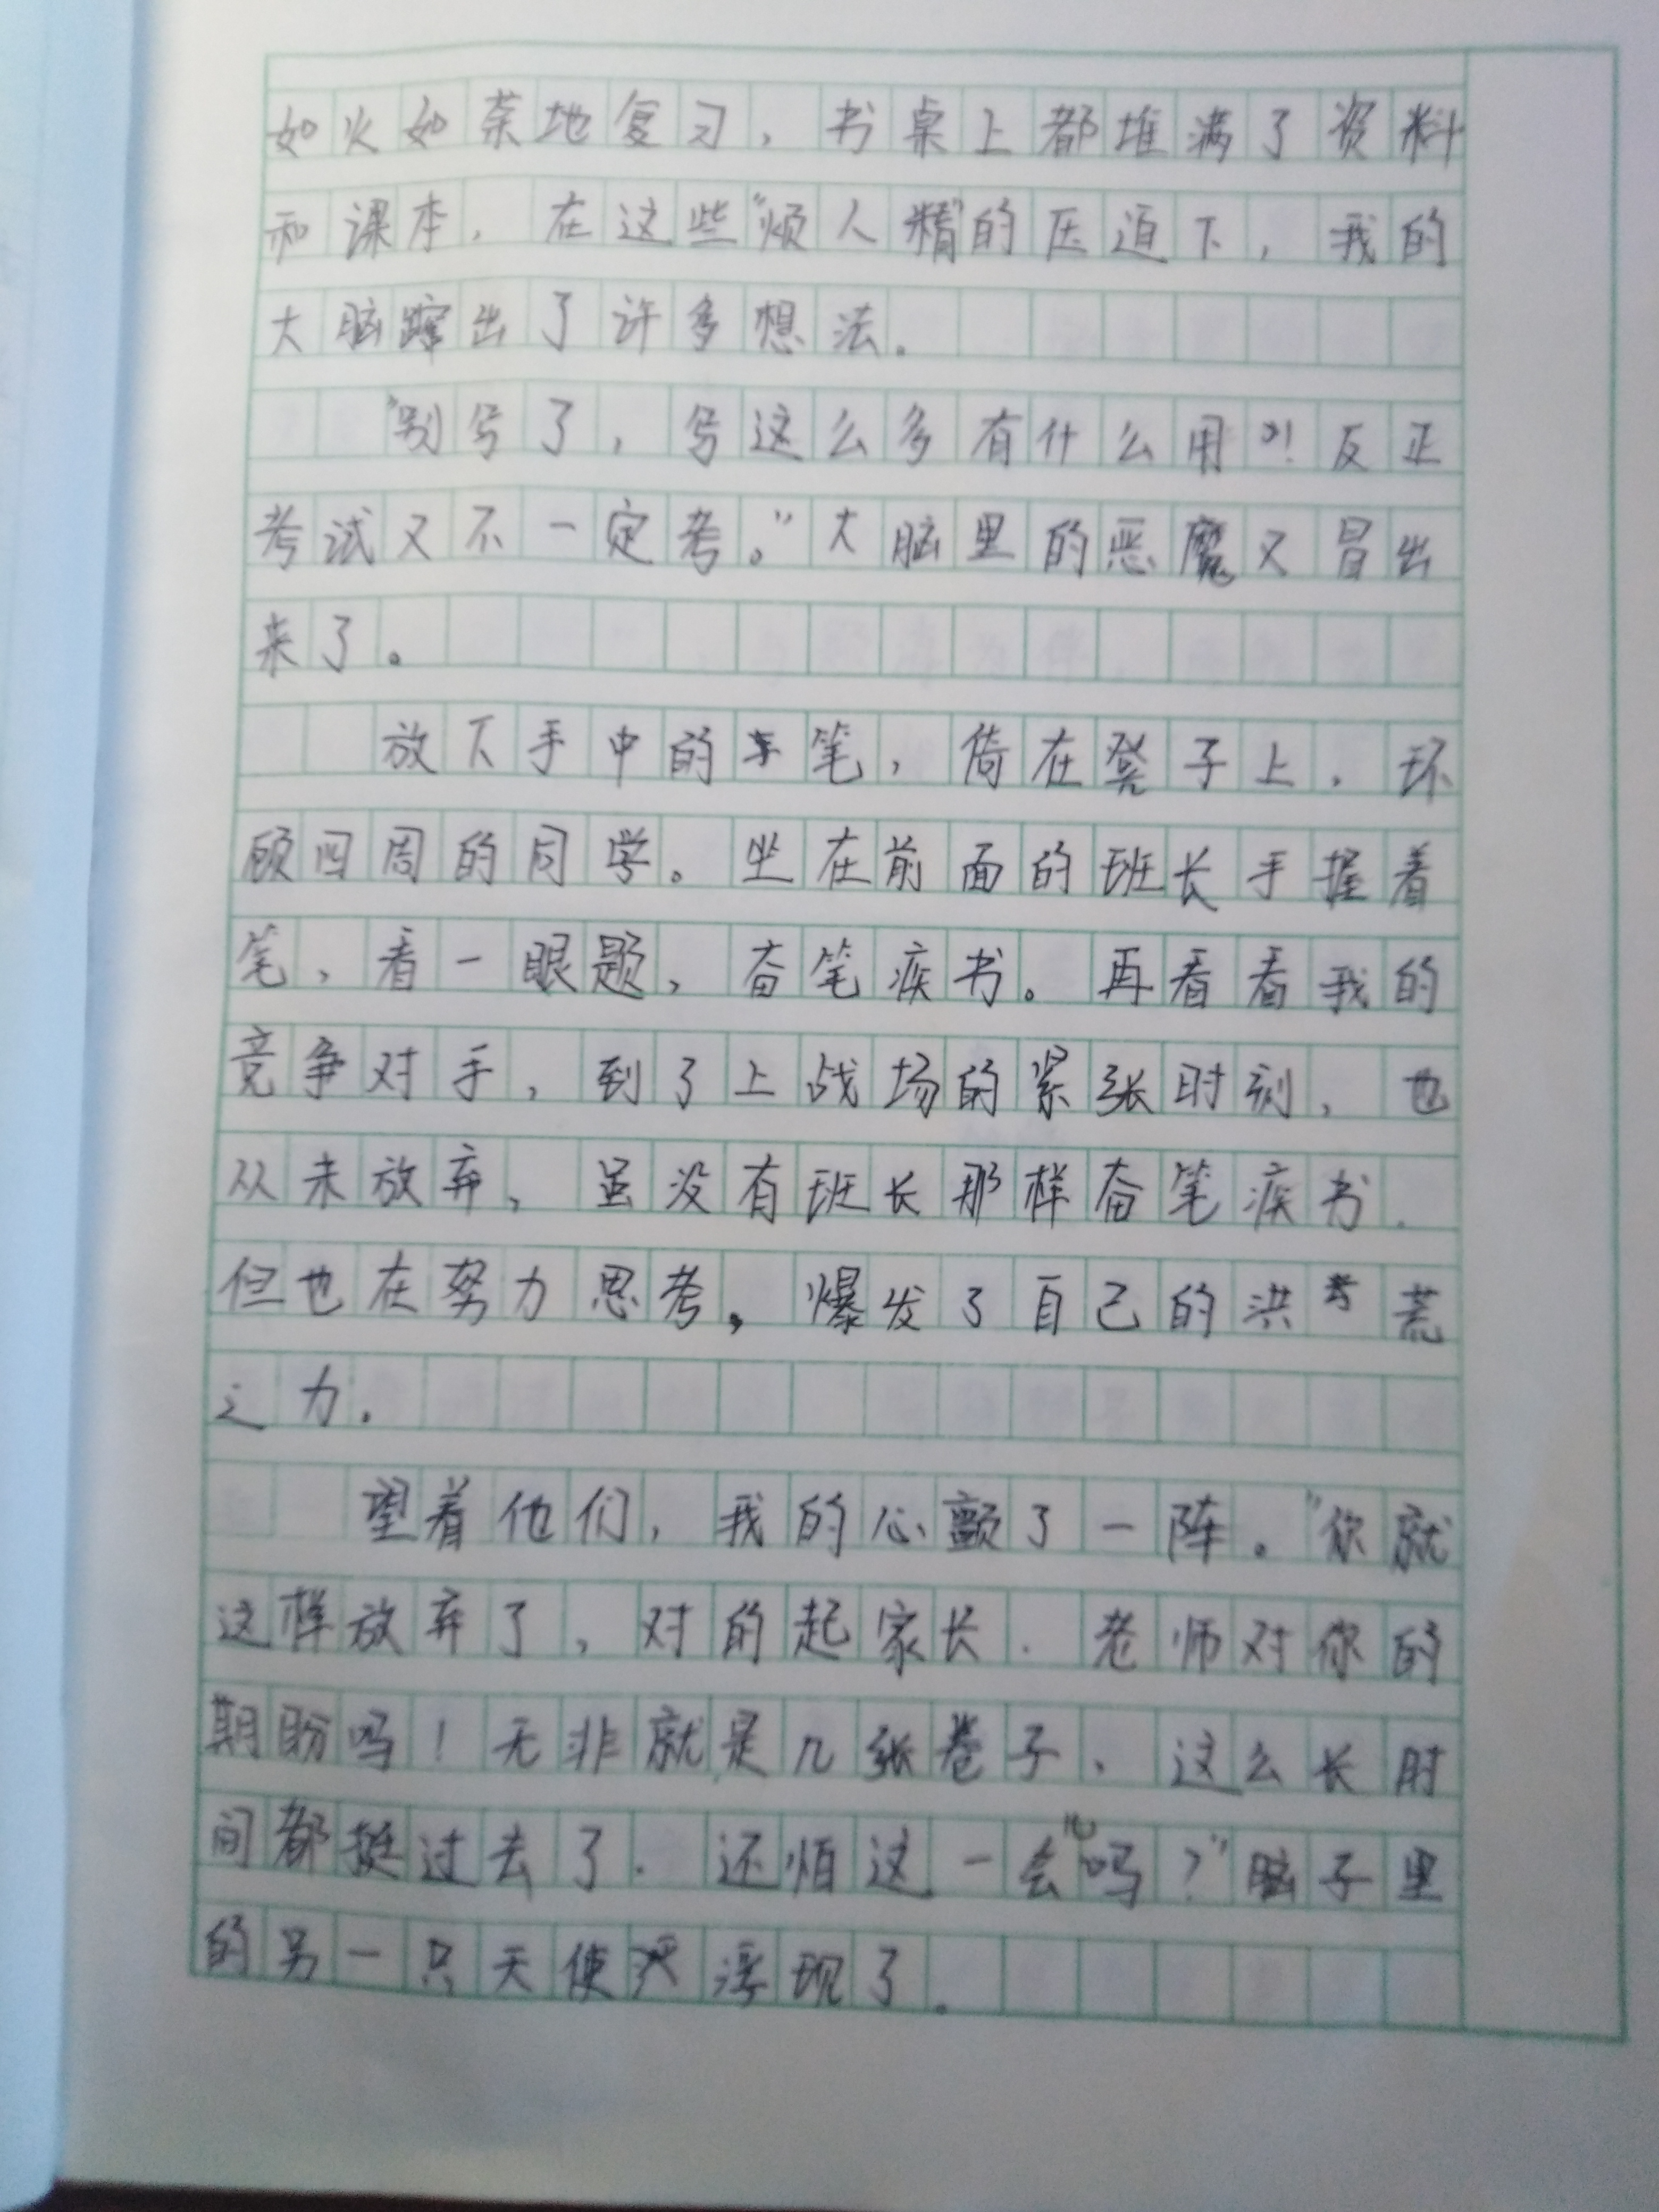 如火如荼地复习，书桌上都堆满了资料
和课本，在这些“烦人精”的压迫下，我的
大脑蹿出了许多想法。
“别写了，写这么多有什么用？！反正
考试又不一定考。”大脑里的恶魔又冒出
来了。
放下手中的笔，倚在凳子上，环
顾四周的同学。坐在前面的班长手握着
笔，看一眼题，奋笔疾书。再看看我的
竞争对手，到了上战场的紧张时刻，也
从未放弃，虽没有班长那样奋笔疾书，
但也在努力思考，爆发了自己的洪荒
之力。
望着他们，我的心颤了一阵。“你就
这样放弃了，对的起家长、老师对你的
期盼吗！无非就是几张卷子，这么长时
间都挺过去了，还怕这一会儿吗？”脑子里
的另一只天使浮现了。